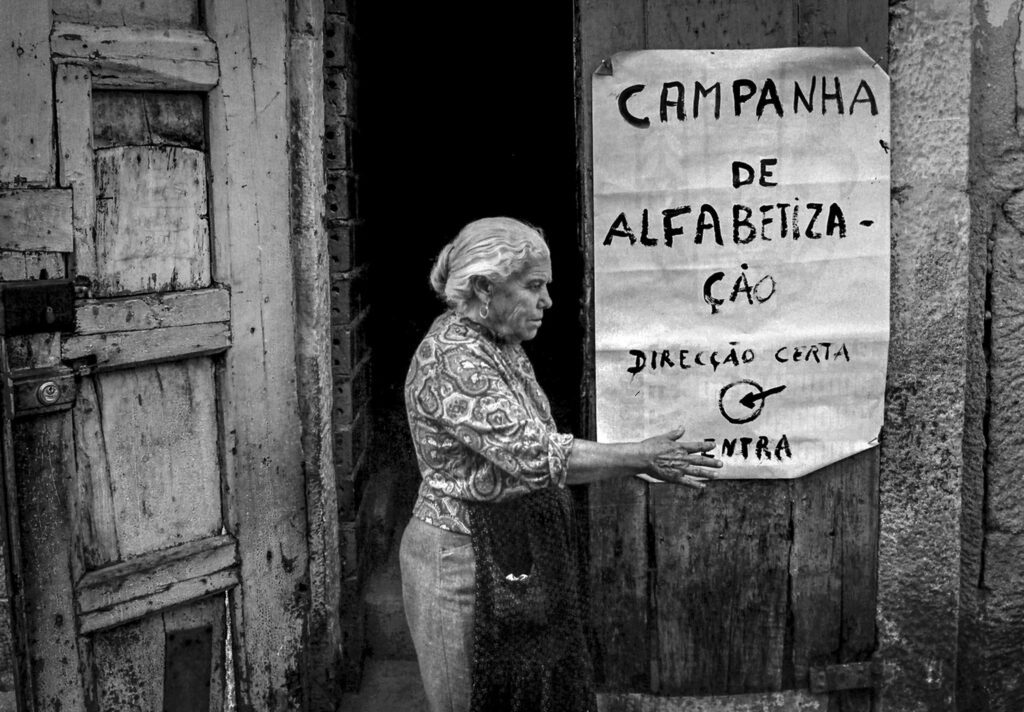 CAMPANHA
DE
ALFABETIZA-
ÇÃO
DIRECÇÃO CERTA
ENTRA